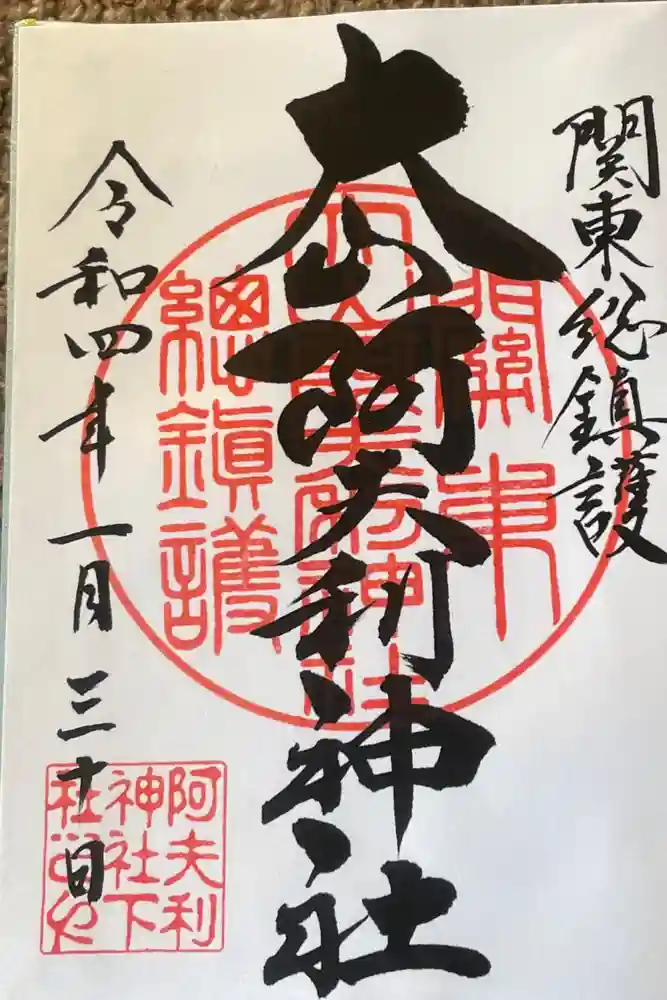 関東総鎮護
大山阿夫利神社
令和四年一月三十日
關東
大山阿夫利神社
總鎮護
阿夫利
神社下
社